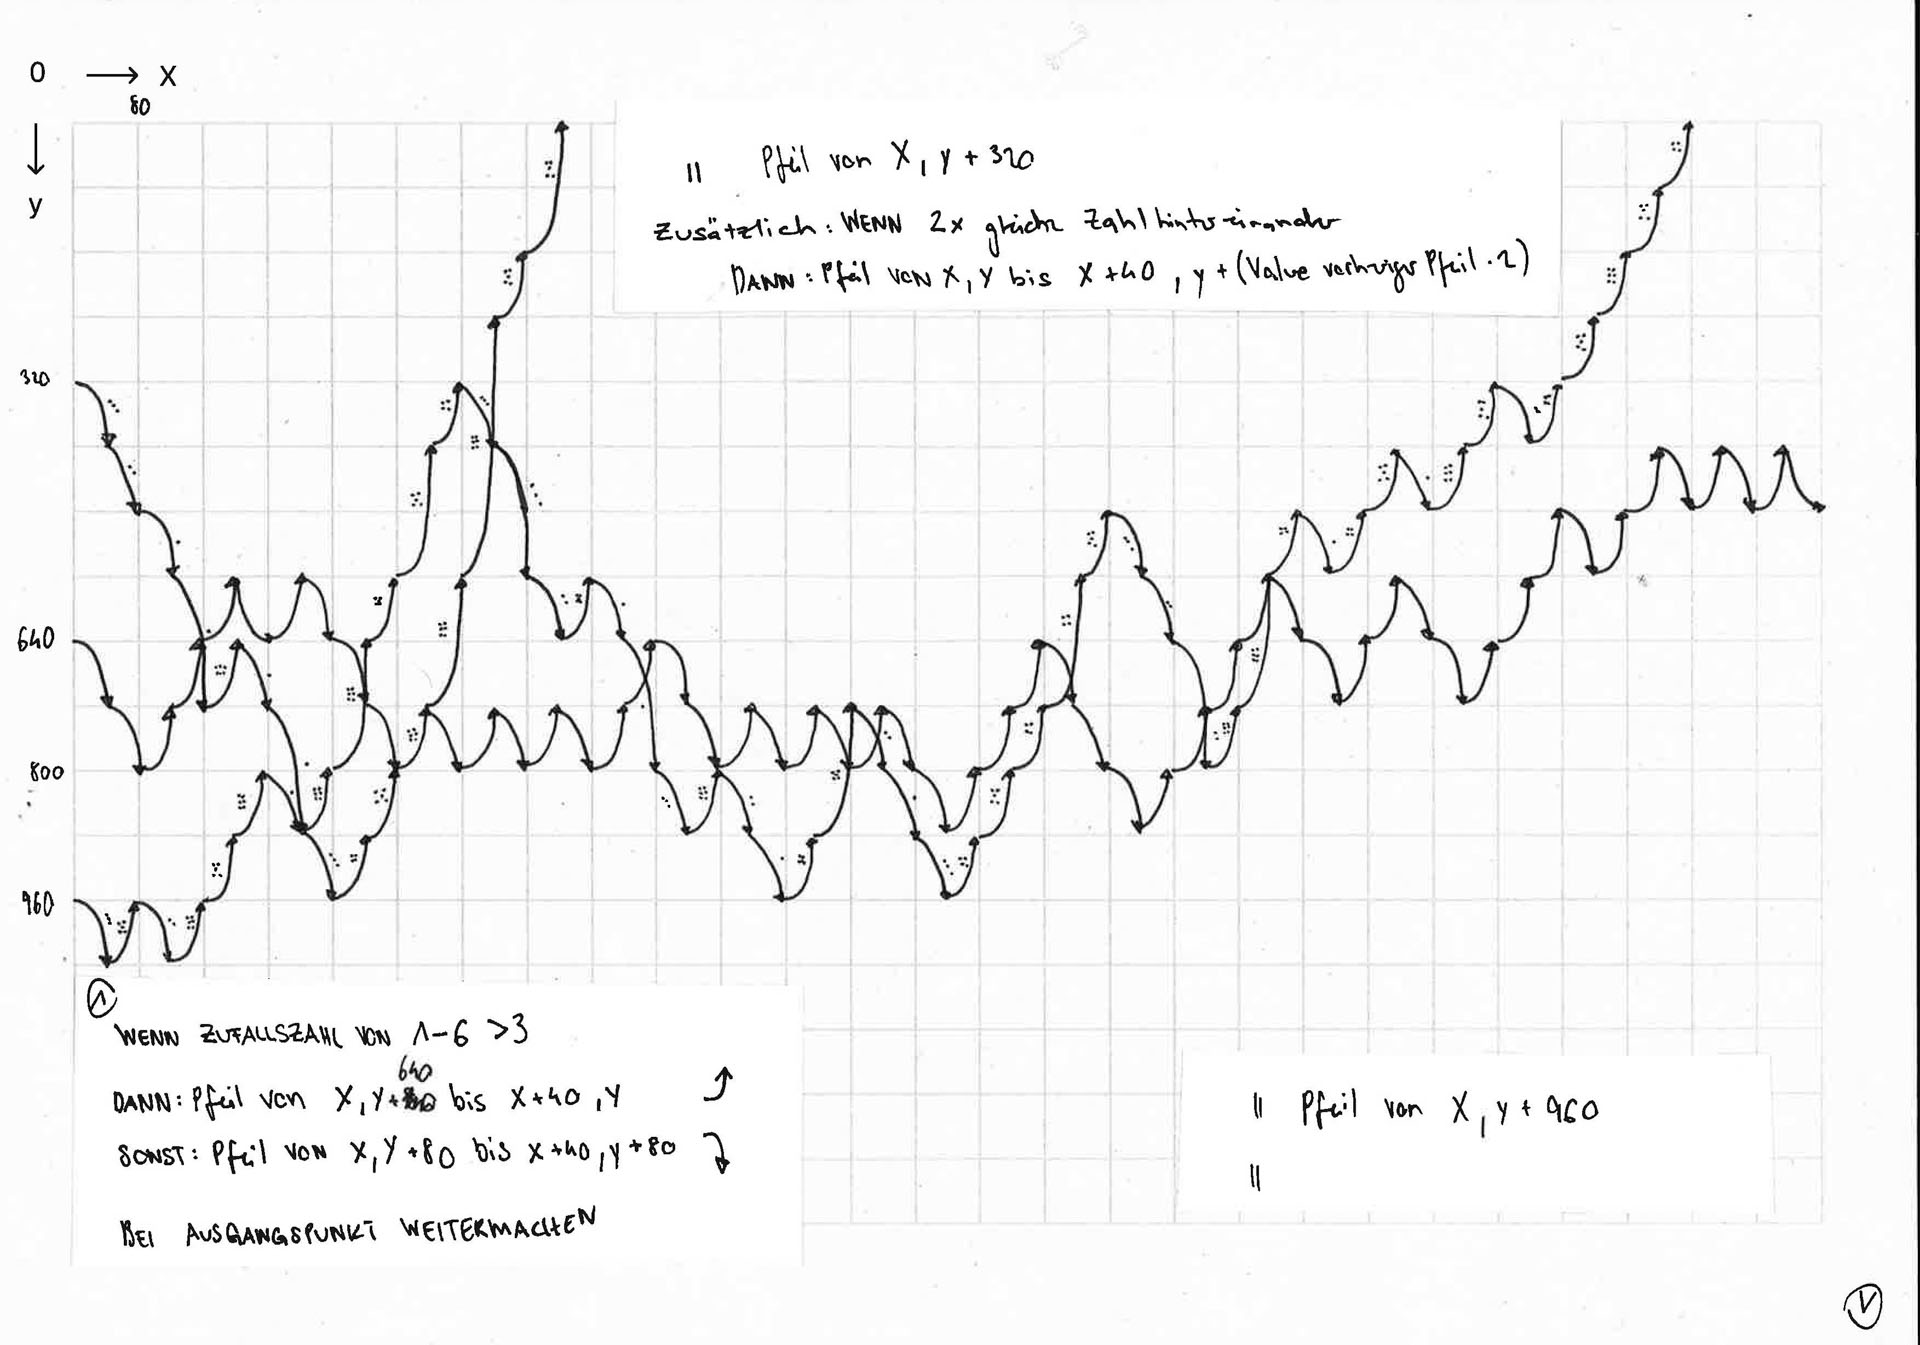 0 → X
80
y
" Pfeil von X, y + 320
Zusätzlich: WENN 2x gleiche Zahl hintereinander
DANN: Pfeil von X, Y bis X+40, y + (Value vorheriger Pfeil · 2)
320
640
800
960
1
WENN ZUFALLSZAHL VON 1-6 >3
640
DANN: Pfeil von X, Y+ bis X+40, Y
SONST: Pfeil von X, Y+80 bis X+40, Y+80
BEI AUSGANGSPUNKT WEITERMACHEN
" Pfeil von X, y + 960
"
V